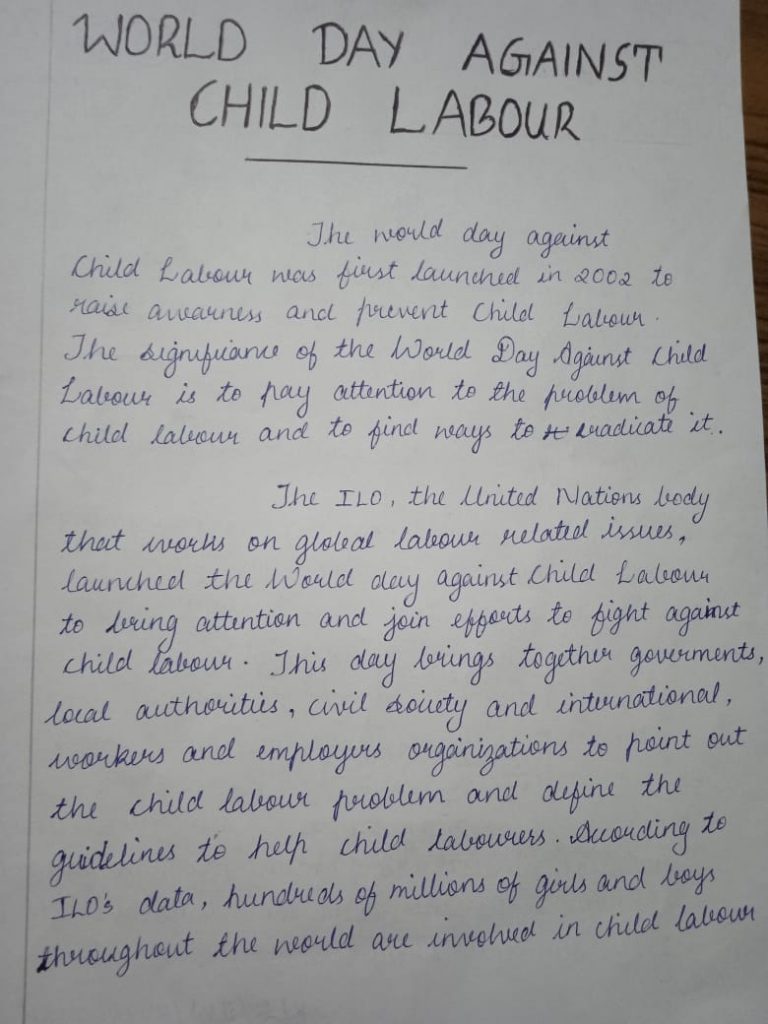 WORLD DAY AGAINST
CHILD LABOUR
The world day against
Child Labour was first launched in 2002 to
raise awarness and prevent Child Labour.
The significance of the World Day Against Child
Labour is to pay attention to the problem of
child labour and to find ways to eradicate it.
The ILO, the United Nations body
that works on global labour related issues,
launched the World day against Child Labour
to bring attention and join efforts to fight against
child labour. This day brings together goverments,
local authorities, civil society and international,
workers and employers organizations to point out
the child labour problem and define the
guidelines to help child labourers. According to
ILO's data, hundreds of millions of girls and boys
throughout the world are involved in child labour